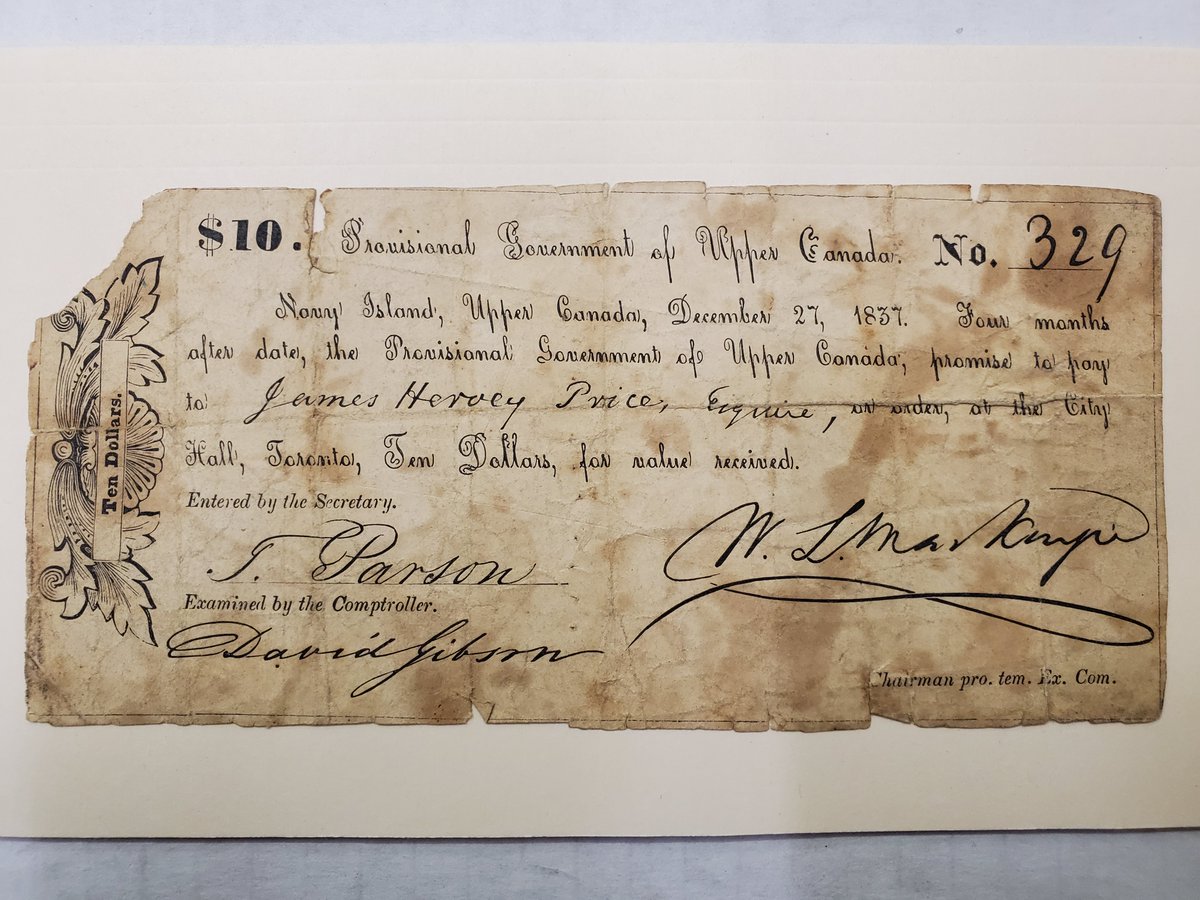 $10. Provisional Government of Upper Canada. No. 329
Navy Island, Upper Canada, December 27, 1837. Four months
after date, the Provisional Government of Upper Canada, promise to pay
to James Hervey Price, Esquire, or order, at the City
Hall, Toronto, Ten Dollars, for value received.
Entered by the Secretary.
T. Parson
W. L. Mackenzie
Examined by the Comptroller.
David Gibson
Chairman pro. tem. Ex. Com.
Ten Dollars.